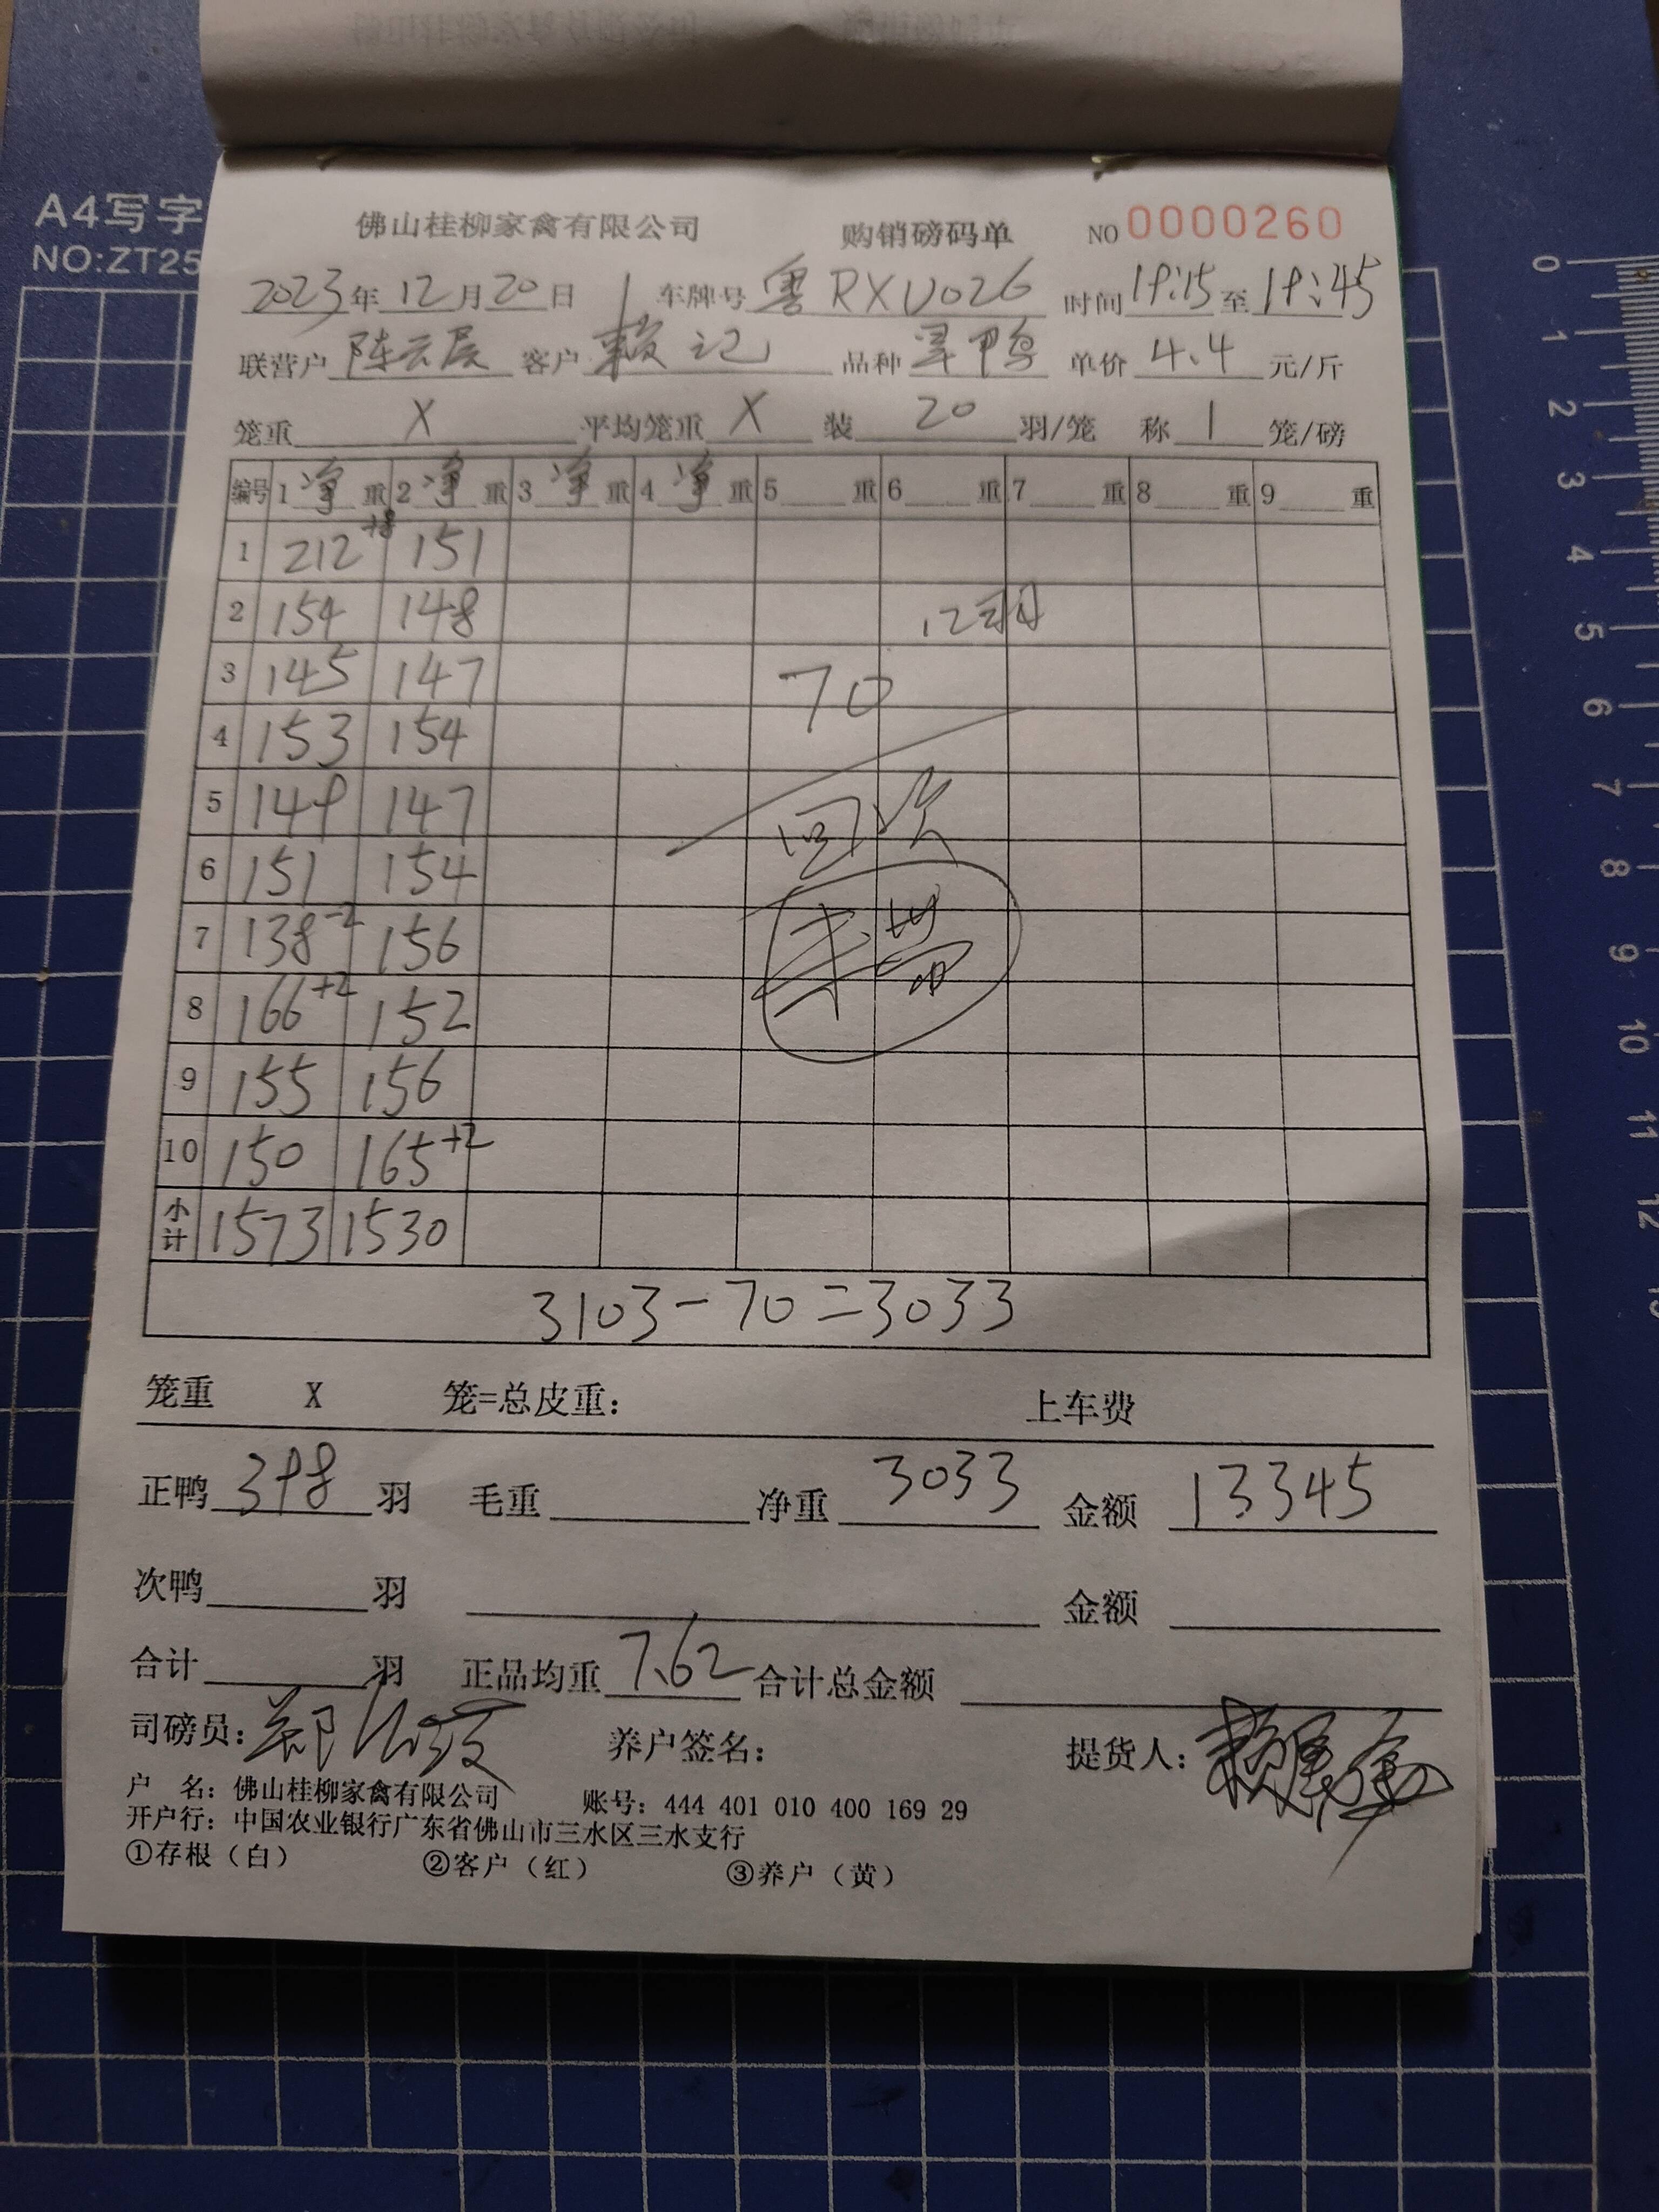 A4写字
NO:ZT25
佛山桂柳家禽有限公司 购销磅码单 NO 0000260
2023年12月20日 车牌号 粤RXU026 时间 19:15至19:45
联营户 陈云辰 客户 赖记 品种 单价 4.4 元/斤
笼重 X 平均笼重 X 装 20 羽/笼 称 1 笼/磅
编号 1净重 2净重 3净重 4净重 5重 6重 7重 8重 9重
1 212+8 151
2 154 148
3 145 147
4 153 154
5 149 147
6 151 154
7 138-2 156
8 166+2 152
9 155 156
10 150 165+2
小计 1573 1530
70
3103-70=3033
笼重 X 笼=总皮重: 上车费
正鸭 398 羽 毛重 净重 3033 金额 13345
次鸭 羽 金额
合计 羽 正品均重 7.62 合计总金额
司磅员: 养户签名: 提货人:
户 名: 佛山桂柳家禽有限公司 账号: 444 401 010 400 169 29
开户行: 中国农业银行广东省佛山市三水区三水支行
①存根（白） ②客户（红） ③养户（黄）
0
1
2
3
4
5
6
7
8
9
10
11
12
13